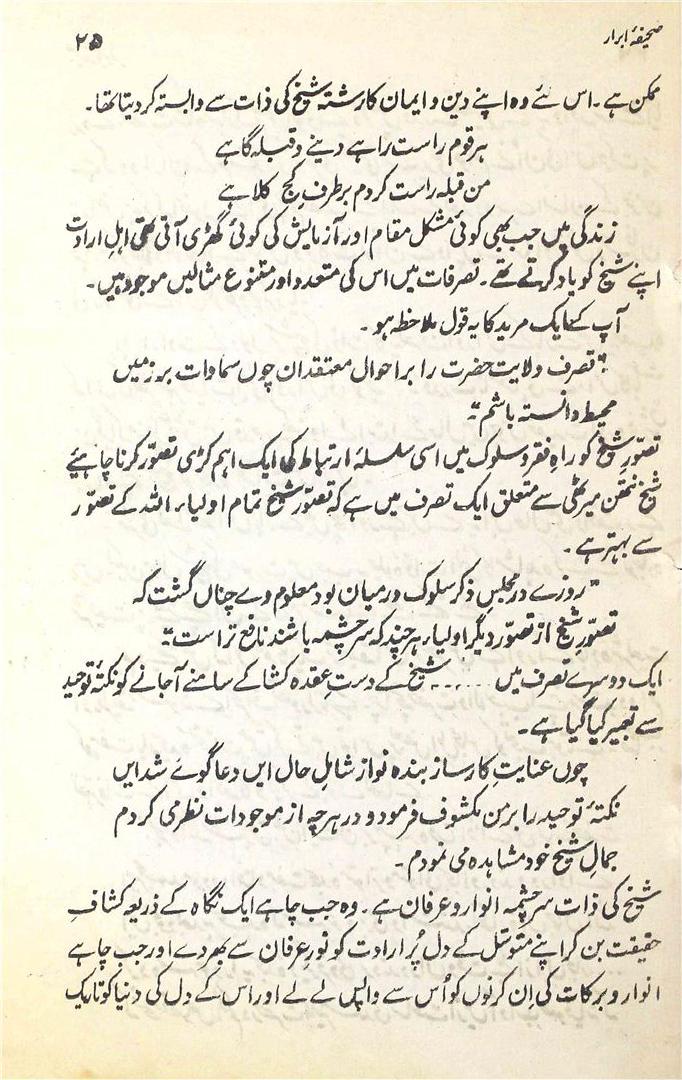 صحیفۂ ابرار
۲۵
ممکن ہے۔ اس لئے وہ اپنے دین و ایمان کا رشتہ شیخ کی ذات سے وابستہ کر دیتا تھا۔
ہر قوم راست راہے دینے و قبلہ گاہے
من قبلہ راست کردم بر طرفِ کج کلاہے
زندگی میں جب بھی کوئی مشکل مقام اور آزمایش کی کوئی گھڑی آتی تھی اہلِ ارادت
اپنے شیخ کو یاد کرتے تھے۔ تصرفات میں اس کی متعدد اور متنوع مثالیں موجود ہیں۔
آپ کے ایک مرید کا یہ قول ملاحظہ ہو۔
"تصرف ولایت حضرت را بر احوال معتقدان چوں سماوات بر زمیں
محیط دانستہ باشم"
تصوّرِ شیخ کو راہِ فقر و سلوک میں اسی سلسلۂ ارتباط کی ایک اہم کڑی تصوّر کرنا چاہیٔے
شیخ نتھن میرٹھی سے متعلق ایک تصرف میں ہے کہ تصوّرِ شیخ تمام اولیاء اللہ کے تصوّر
سے بہتر ہے۔
"روزے در مجلس ذکر سلوک درمیان بود معلوم وے چناں گشت کہ
تصوّرِ شیخ از تصوّر دیگر اولیاء ہر چند کہ سر چشمہ باشند نافع تر است"
ایک دوسرے تصرف میں ...... شیخ کے دستِ عقدہ کشا کے سامنے آجانے کو نکتۂ توحید
سے تعبیر کیا گیا ہے۔
چوں عنایتِ کارساز بندہ نواز شاملِ حال ایں دعا گوئے شد ایں
نکتۂ توحید را بر من مکشوف فرمود و در ہر چہ از موجودات نظر می کردم
جمالِ شیخ خود مشاہدہ می نمودم۔
شیخ کی ذات سرچشمہ انوار و عرفان ہے۔ وہ جب چاہے ایک نگاہ کے ذریعہ کشافِ
حقیقت بن کر اپنے متوسّل کے دل پُر ارادت کو نورِ عرفان سے بھر دے اور جب چاہے
انوار و برکات کی اِن کرنوں کو اُس سے واپس لے لے اور اس کے دل کی دنیا کو تاریک